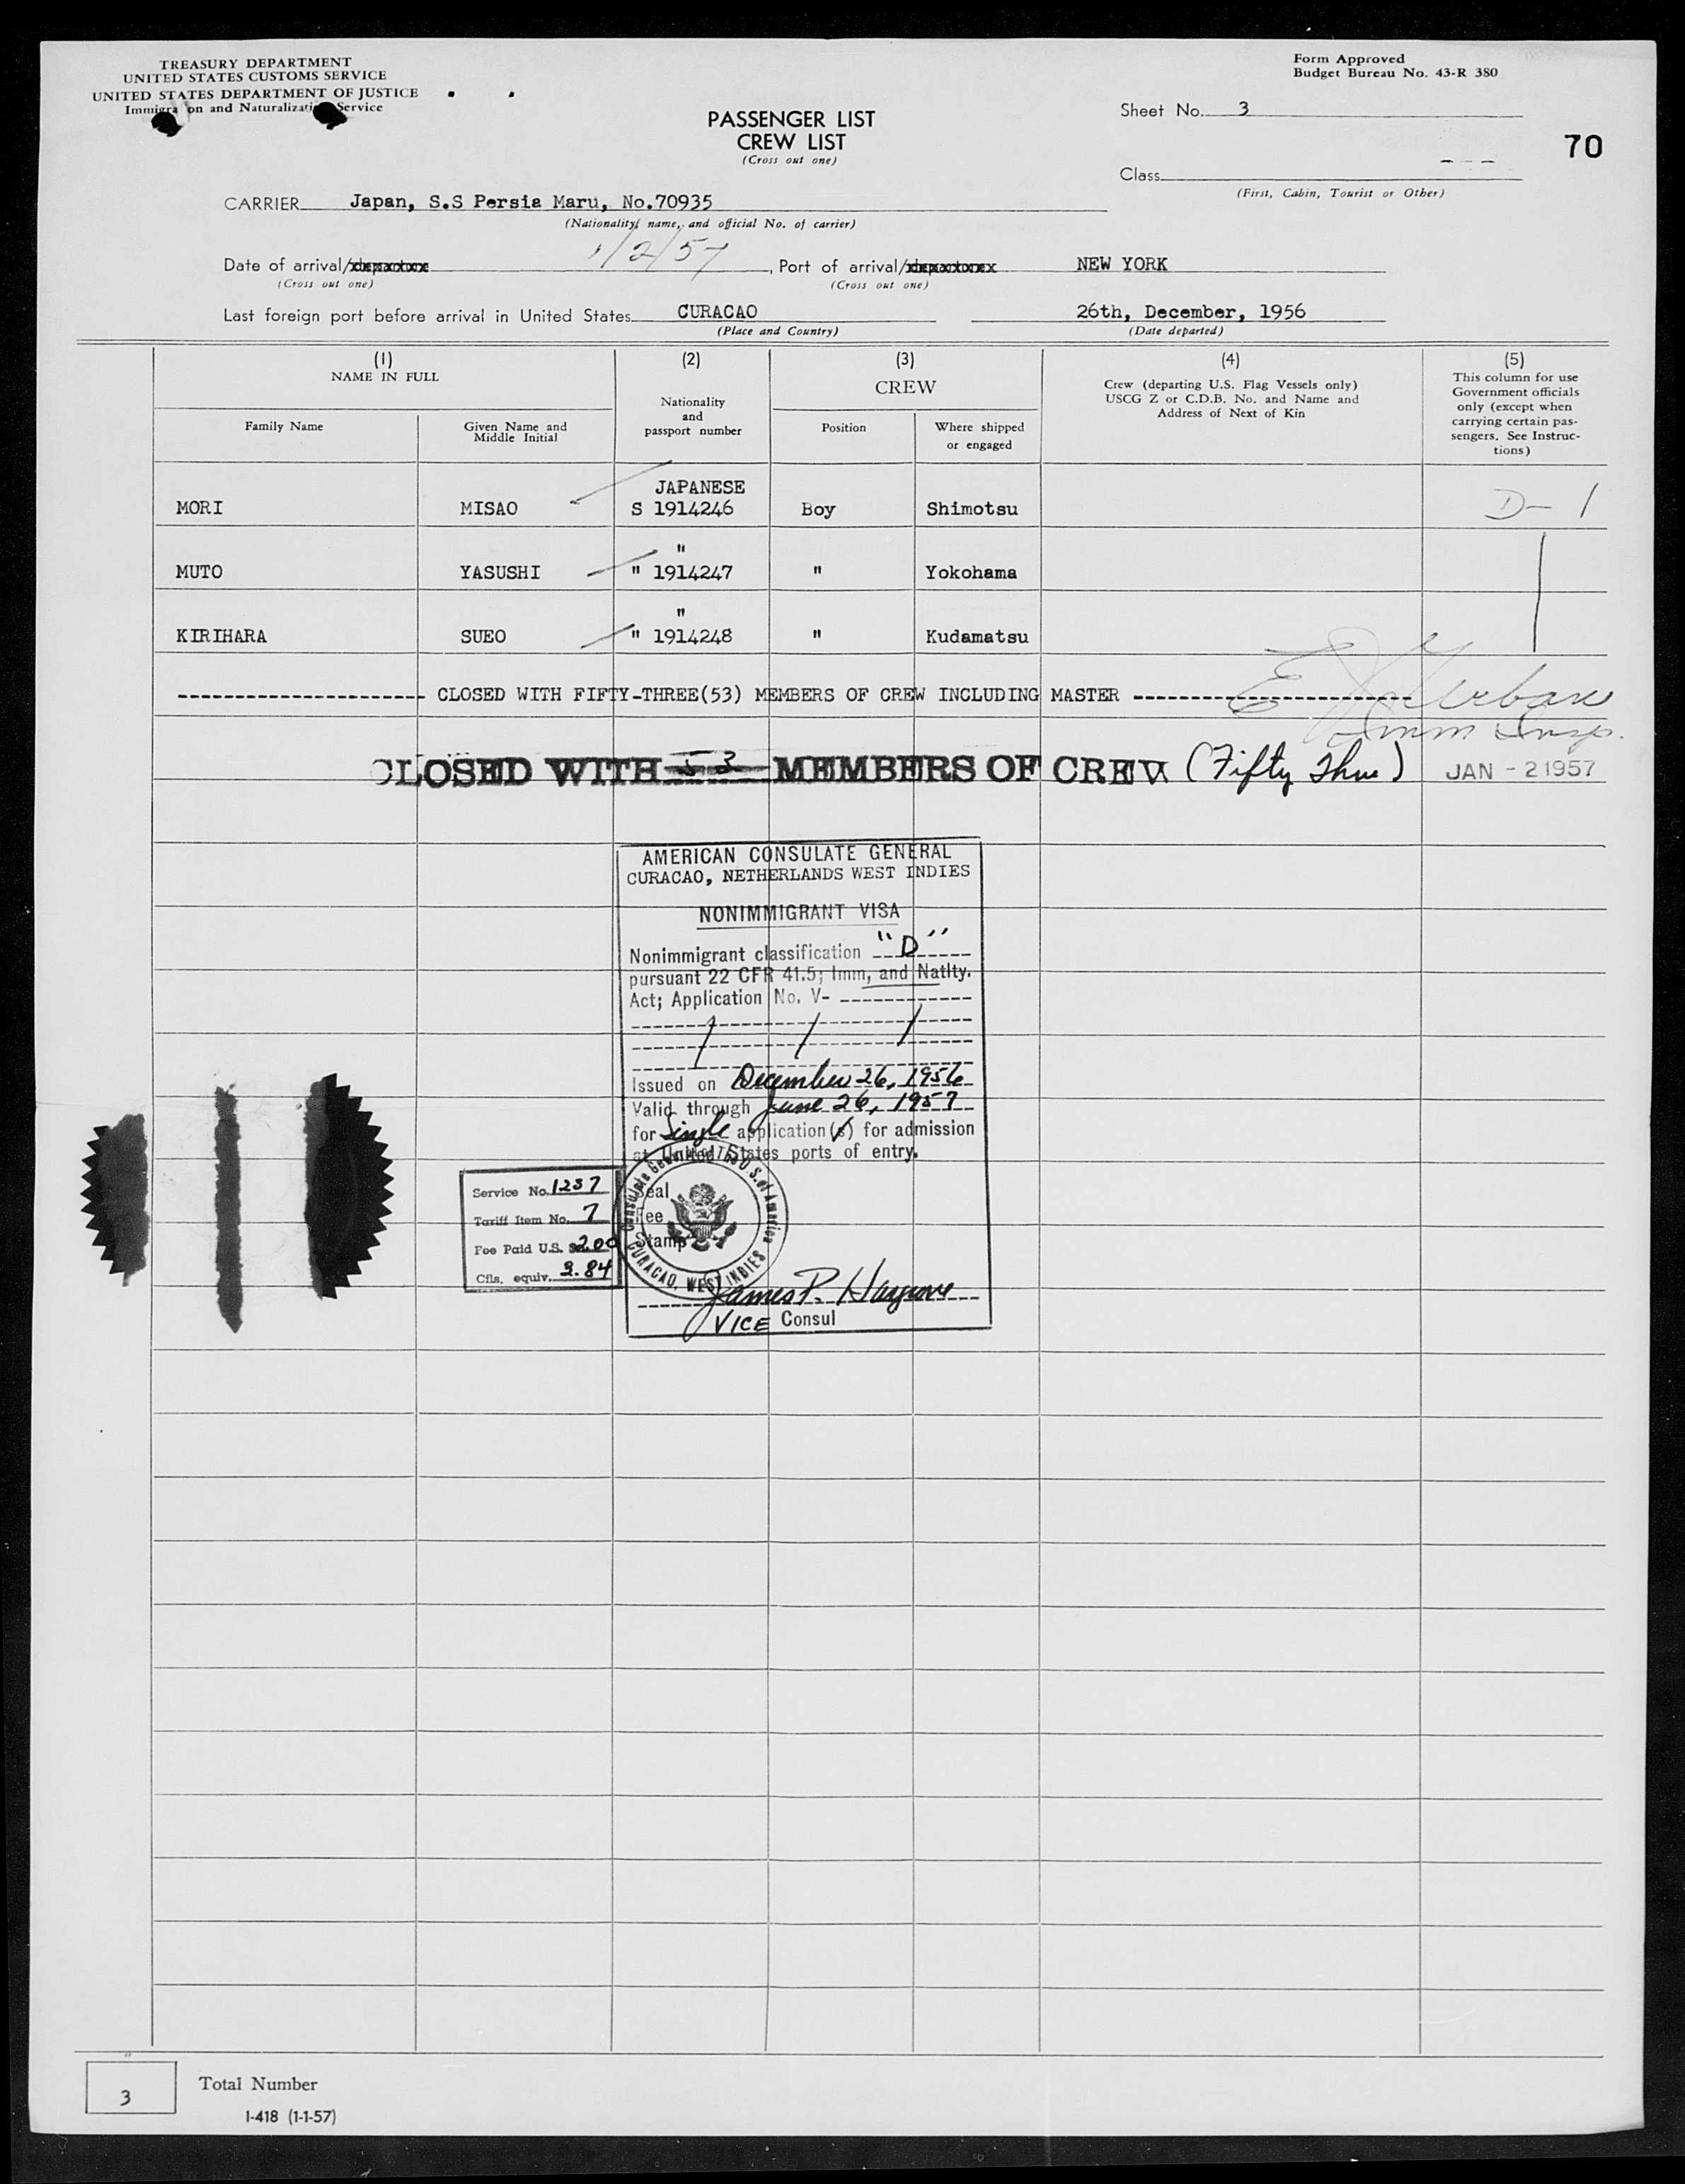 TREASURY DEPARTMENT
UNITED STATES CUSTOMS SERVICE
UNITED STATES DEPARTMENT OF JUSTICE
Immigra on and Naturalizati Service
Form Approved
Budget Bureau No. 43-R 380
PASSENGER LIST
CREW LIST
(Cross out one)
Sheet No. 3
70
Class - - -
(First, Cabin, Tourist or Other)
CARRIER Japan, S.S Persia Maru, No.70935
(Nationality, name, and official No. of carrier)
Date of arrival/ 1/2/57, Port of arrival/ NEW YORK
(Cross out one) (Cross out one)
Last foreign port before arrival in United States CURACAO 26th, December, 1956
(Place and Country) (Date departed)
(1) (2) (3) (4) (5)
NAME IN FULL
Family Name
Given Name and
Middle Initial
Nationality
and
passport number
CREW
Position
Where shipped
or engaged
Crew (departing U.S. Flag Vessels only)
USCG Z or C.D.B. No. and Name and
Address of Next of Kin
This column for use
Government officials
only (except when
carrying certain pas-
sengers. See Instruc-
tions)
JAPANESE
MORI MISAO S 1914246 Boy Shimotsu D-1
"
MUTO YASUSHI " 1914247 " Yokohama
"
KIRIHARA SUEO " 1914248 " Kudamatsu
--------------------- CLOSED WITH FIFTY-THREE(53) MEMBERS OF CREW INCLUDING MASTER ------------------------
Imm Insp.
CLOSED WITH 53 MEMBERS OF CREW (Fifty Three) JAN - 2 1957
AMERICAN CONSULATE GENERAL
CURACAO, NETHERLANDS WEST INDIES
NONIMMIGRANT VISA
Nonimmigrant classification "D"
pursuant 22 CFR 41.5; Imm, and Natlty.
Act; Application No. V-
Issued on December 26, 1956
Valid through June 26, 1957
for Single application(s) for admission
at United States ports of entry.
Seal
Fee
Stamp
Consulate General of the U.S. of America
CURACAO, WEST INDIES
James P. Hargrove
VICE Consul
Service No. 1237
Tariff Item No. 7
Fee Paid U.S. $2.00
Cfls. equiv. 3.84
3
Total Number
I-418 (1-1-57)